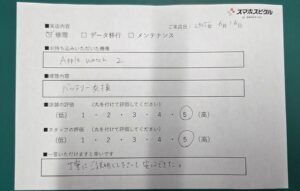 スマホスピタル
■来店内容
ご来店日: 6月16日
☑ 修理 □ データ移行 □ メンテナンス
■お持ち込みいただいた機種
Apple watch 2
■修理内容
バッテリー交換
■店舗の評価 (丸を付けて評価してください)
(低) 1 ・ 2 ・ 3 ・ 4 ・ 5 (高)
■スタッフの評価 (丸を付けて評価してください)
(低) 1 ・ 2 ・ 3 ・ 4 ・ 5 (高)
■一言いただけますと幸いです
丁寧に説明してくださって安心できました。